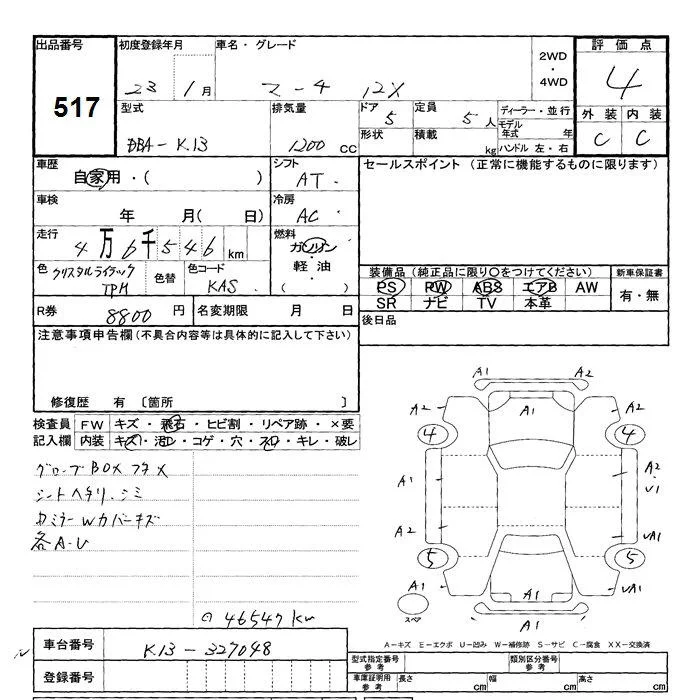 出品番号 初度登録年月 車名・グレード 2WD・4WD 評価点
517 23 1月 マーチ 12X 4
型式 排気量 ドア 定員 ディーラー・並行 外装 内装
DBA-K13 1200 CC 5 5人 モデル年式 年 C C
形状 積載 kg ハンドル 左・右
車歴 シフト セールスポイント (正常に機能するものに限ります)
自家用・( ) AT
車検 冷房
年 月( 日) AC
走行 燃料
4万6千546km ガソリン・軽油・( )
色 色替 色コード 装備品 (純正品に限り○をつけてください) 新車保証書
クリスタルライラック KAS PS PW ABS エアB AW 有・無
TPM SR ナビ TV 本革
R券 8800円 名変期限 月 日 後日品
注意事項申告欄(不具合内容等は具体的に記入して下さい)
修復歴 有 〔箇所 〕
検査員 FW キズ・飛石・ヒビ割・リペア跡・×要
記入欄 内装 キズ・汚レ・コゲ・穴・スレ・キレ・破レ
グローブBOXフタメ
シートヘタリ.シミ
カバーキズ
各A.U
46547km
A1 A2
A2 A1 A2
4 4
A1 A2 U1
A2 UA1
5 5
A1 A1 UA1
スペア A1
A-キズ E-エクボ U-凹み W-補修跡 S-サビ C-腐食 XX-交換済
車台番号 K13-327048 型式指定番号 参考 類別区分番号 参考
登録番号 車庫証明用 参考 長さ cm 幅 cm 高さ cm